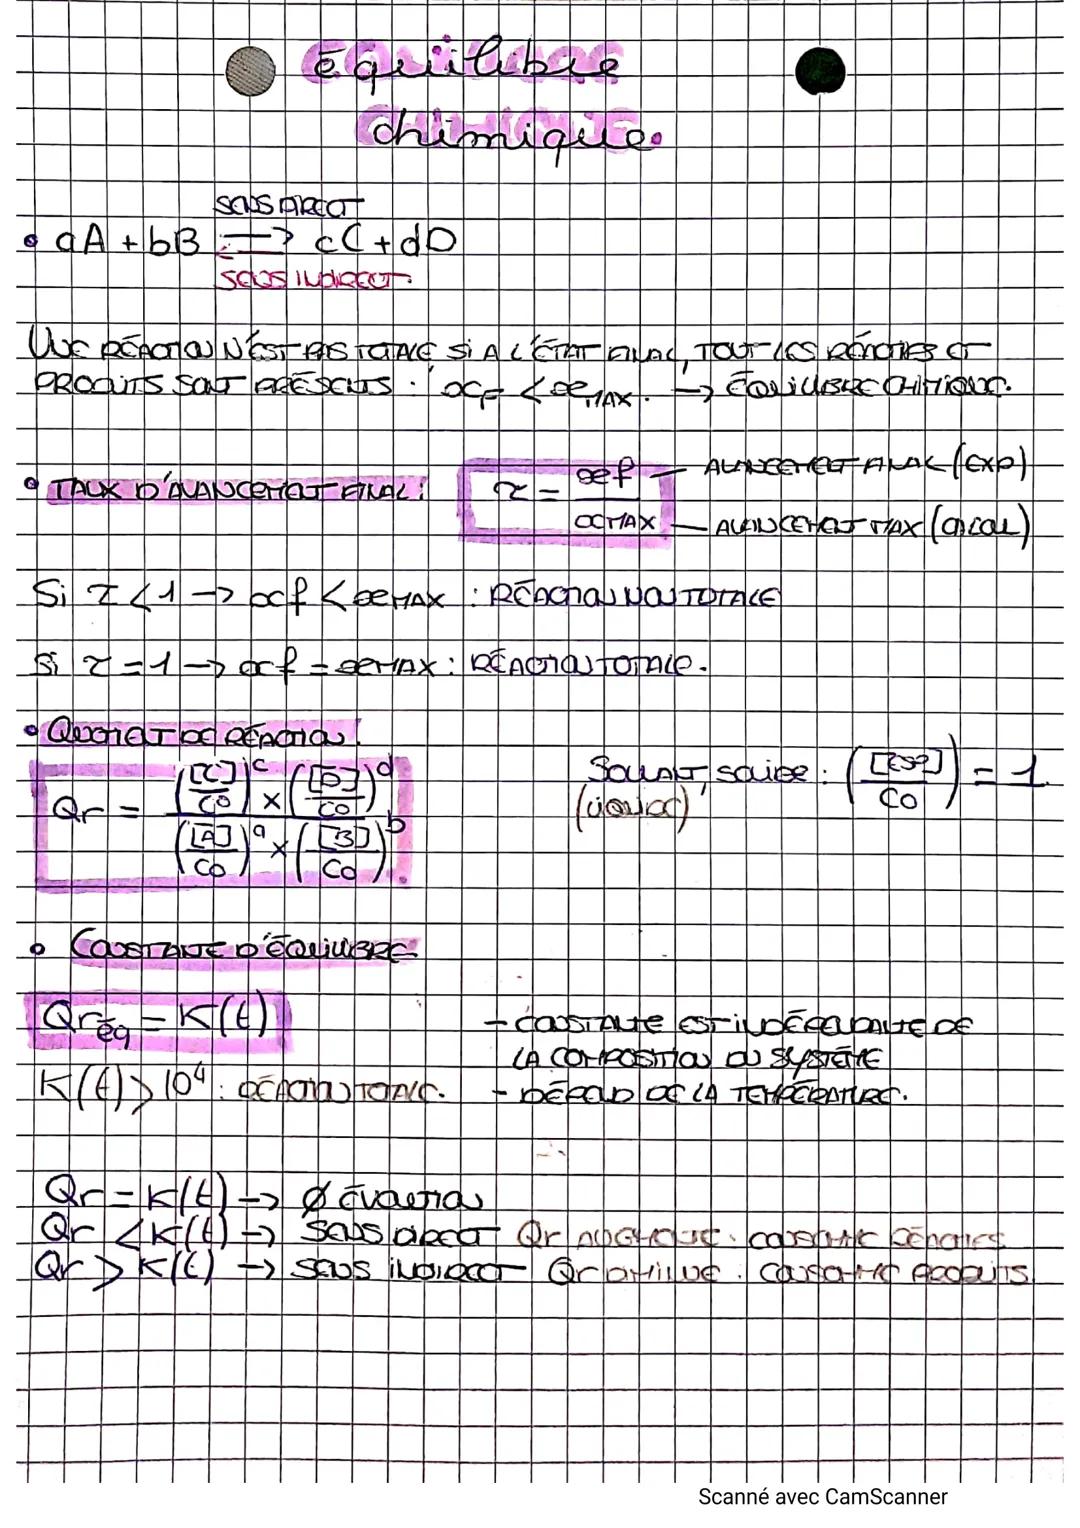 Équilibre
chimique.
SENS DIRECT
• aA + bB ⇄ cC + dD
SENS INDIRECT.
UNE RÉACTION N'EST PAS TOTALE SI A L'ÉTAT FINAL, TOUT LES RÉACTIFS ET
PRODUITS SONT PRÉSENTS : xF < xMAX. → ÉQUILIBRE CHIMIQUE.
• TAUX D'AVANCEMENT FINAL :
τ = xf / xMAX
AVANCEMENT FINAL (EXP)
AVANCEMENT MAX (CALCUL)
Si τ < 1 → xf < xMAX : RÉACTION NON TOTALE
Si τ = 1 → xf = xMAX : RÉACTION TOTALE.
• QUOTIENT DE RÉACTION.
Qr = (([C]/C0)^c × ([D]/C0)^d) / (([A]/C0)^a × ([B]/C0)^b).
SOLVANT, SOLIDE : ([ESP]/C0) = 1.
(LIQUIDE)
• CONSTANTE D'ÉQUILIBRE
Qr éq = K(t)
- CONSTANTE EST INDÉPENDANTE DE
LA COMPOSITION DU SYSTÈME
K(t) > 10^4 : RÉACTION TOTALE.
- DÉPEND DE LA TEMPÉRATURE.
Qr = K(t) → Ø ÉVOLUTION
Qr < K(t) → SENS DIRECT Qr AUGMENTE : CONSOMME RÉACTIFS
Qr > K(t) → SENS INDIRECT Qr DIMINUE : CONSOMME PRODUITS.
Scanné avec CamScanner